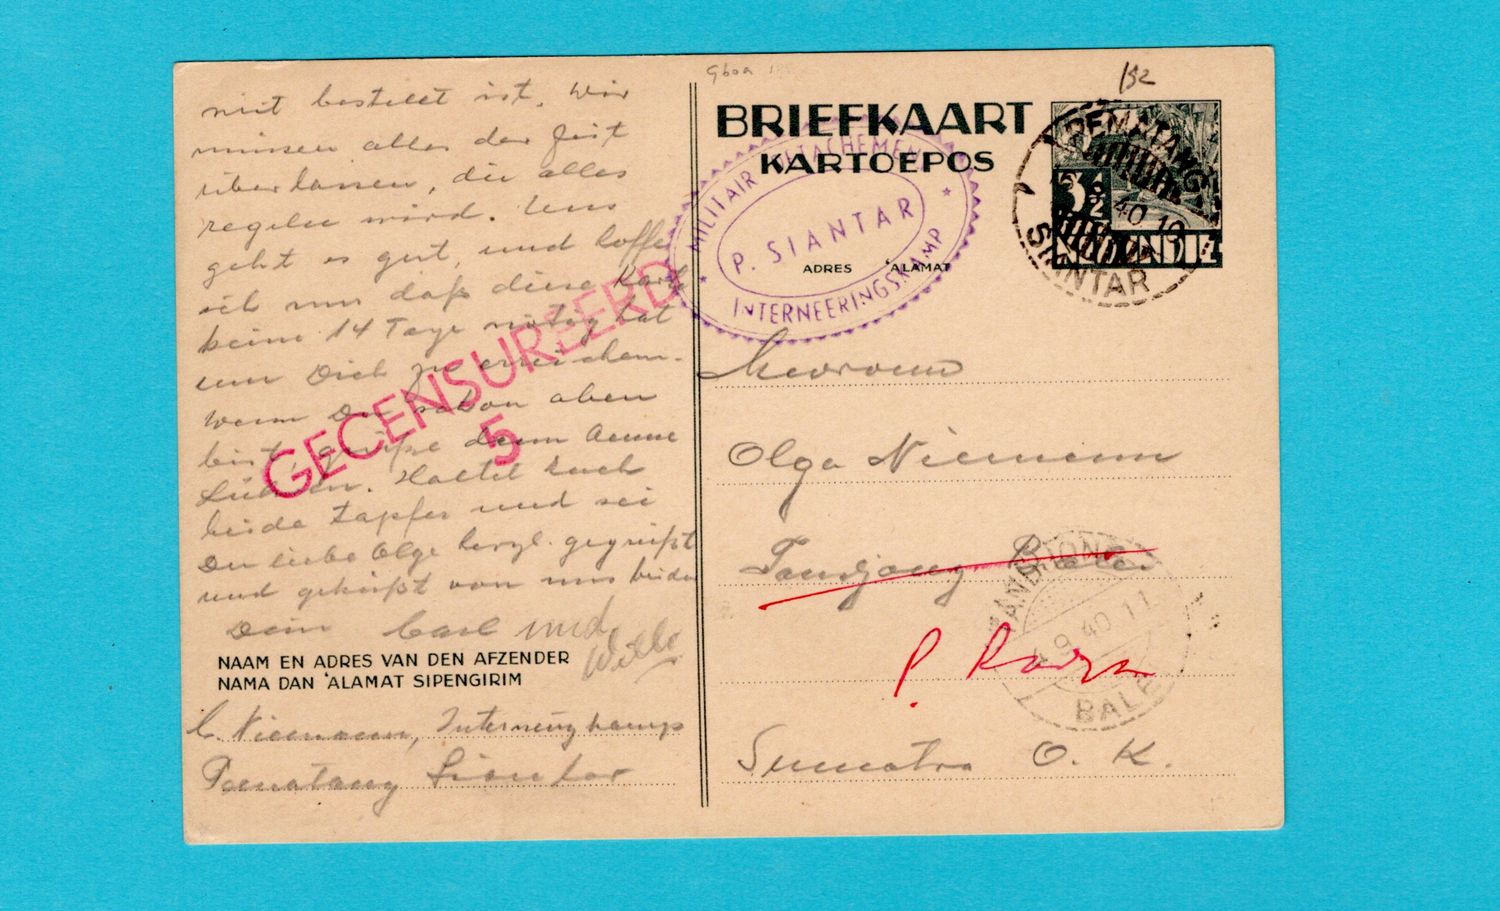 nicht bestellt ist. Wir
müssen alles der Zeit
überlassen, die alles
regeln wird. Uns
geht es gut, und hoffe
ich nur daß diese Karte
keine 14 Tage nötig hat
um Dich zu erreichen.
Wenn Du schon oben
bist, grüße dann
Haltet Euch
beide tapfer und sei
Du liebe Olga herzl. gegrüßt
und geküßt von uns beiden
Dein Carl und
Willi
NAAM EN ADRES VAN DEN AFZENDER
NAMA DAN 'ALAMAT SIPENGIRIM
C. Niemann, Interneringskamp
Pematang Siantar
GECENSUREERD
5
152
BRIEFKAART
KARTOEPOS
ADRES 'ALAMAT
MILITAIR DETACHEMENT
P. SIANTAR
INTERNEERINGSKAMP
3½
PEMATANG
9.40.10
SIANTAR
Mevrouw
Olga Niemann
Tandjong Balei
P. Radja
Sumatra O. K.
TANDJONG
9.40.11
BALEI